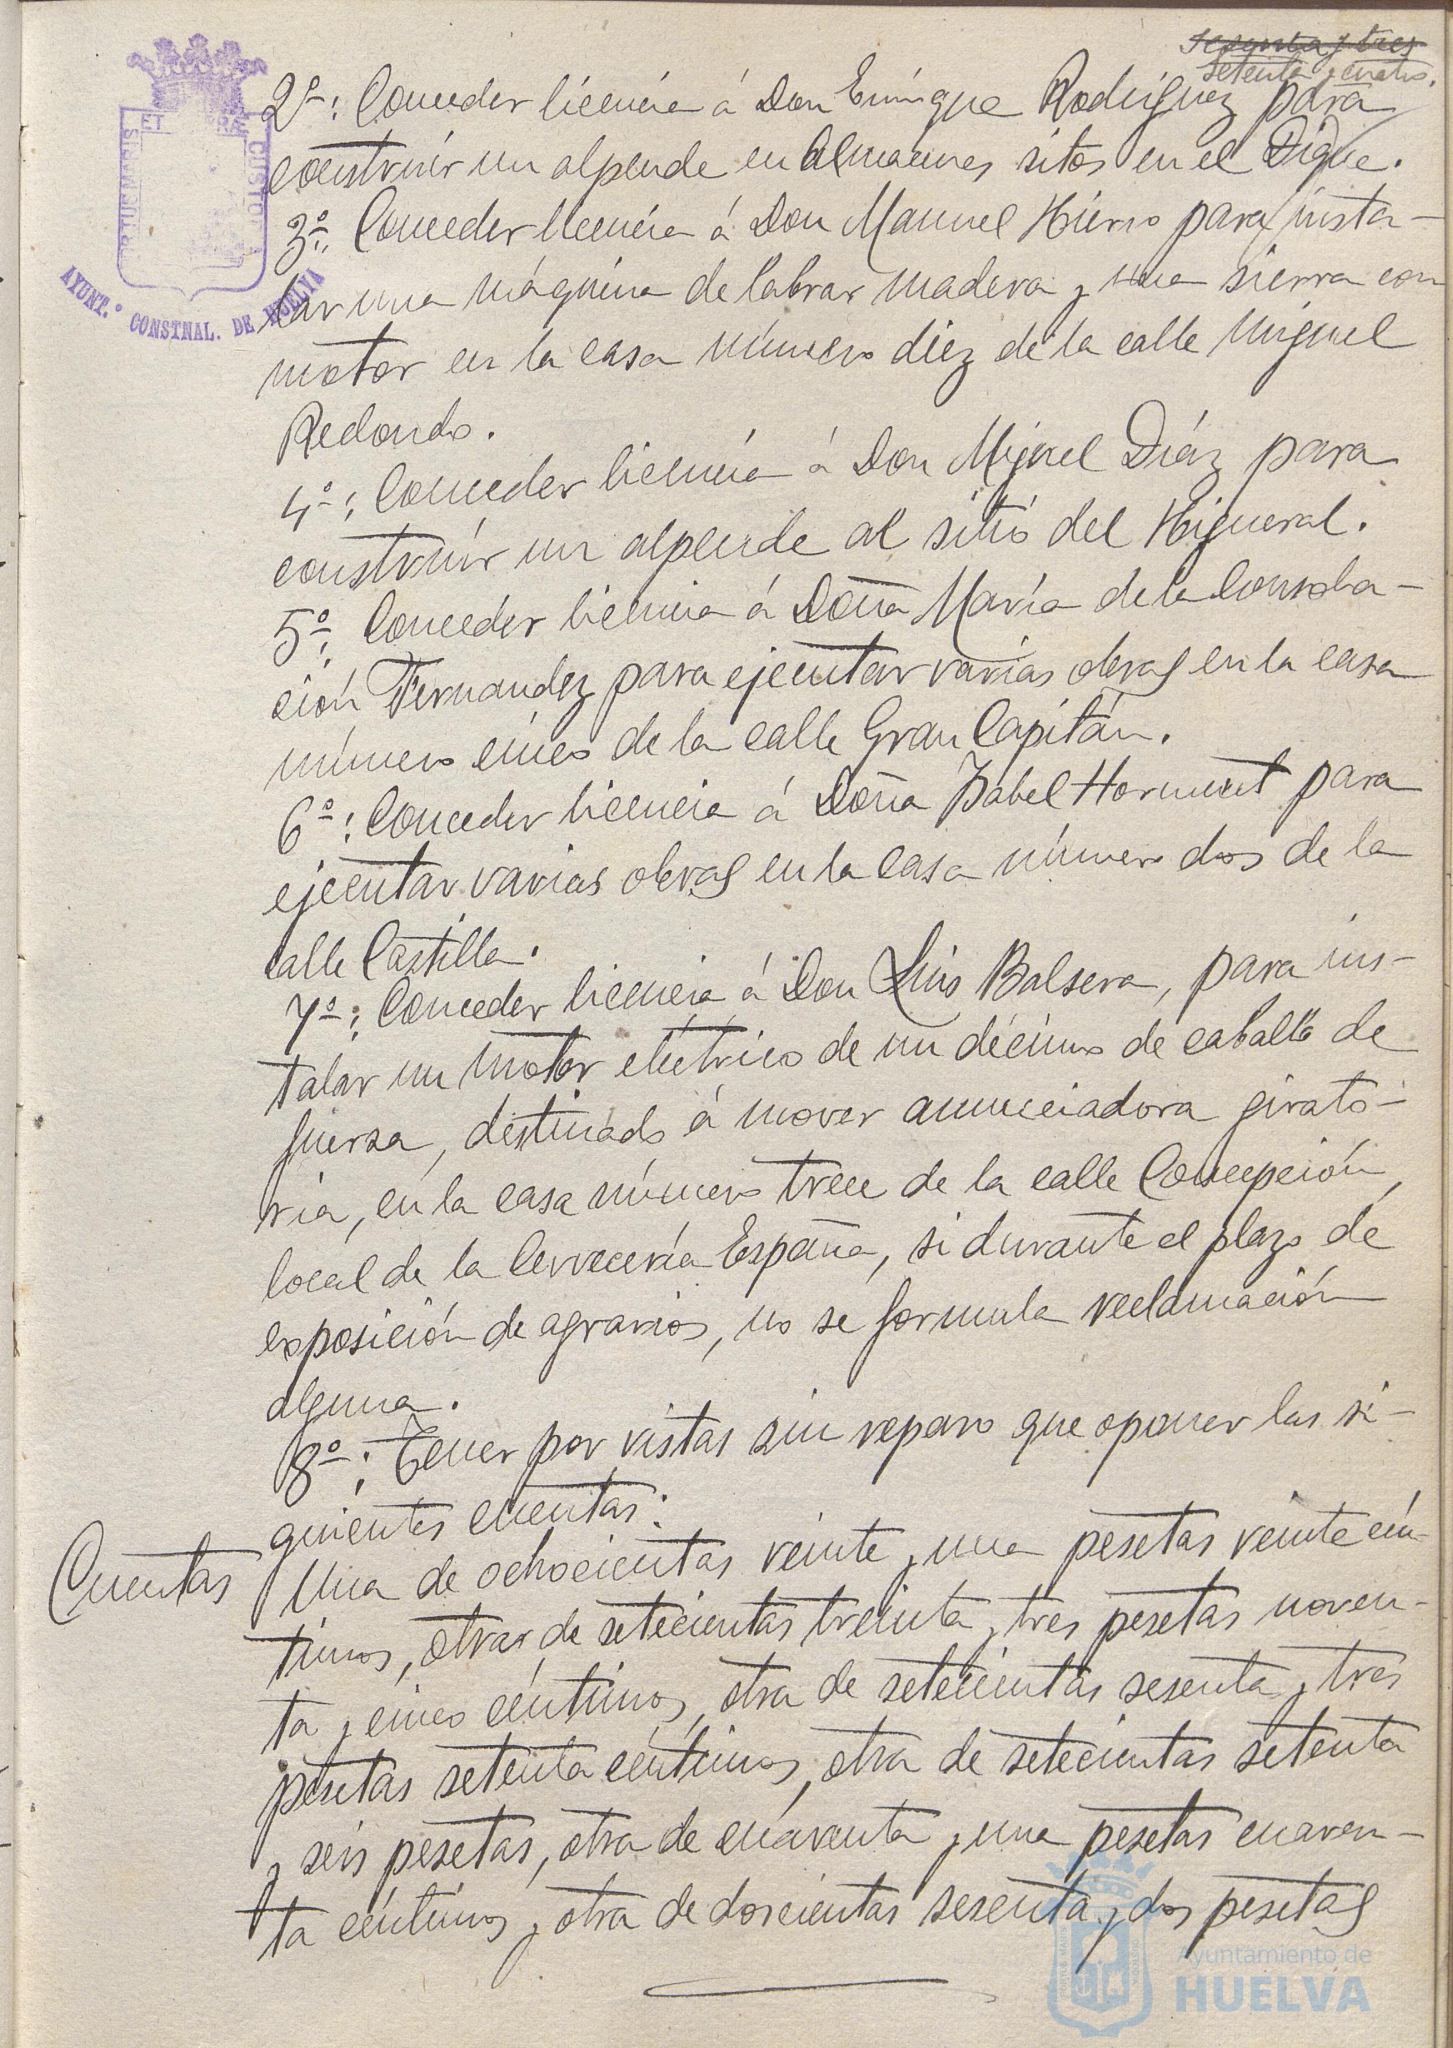 sesenta y tres
setenta y cuatro.
PORTUS MARIS ET TERRÆ CUSTODIA
AYUNT.º CONSTNAL. DE HUELVA
2º: Conceder licencia á Don Enrique Rodríguez para
construir un alpende en almacenes sitos en el Dique.
3º: Conceder licencia á Don Manuel Hierro para insta-
lar una máquina de labrar madera y una sierra con
motor en la casa número diez de la calle Miguel
Redondo.
4º: Conceder licencia á Don Miguel Díaz para
construir un alpende al sitio del Higueral.
5º: Conceder licencia á Doña María de la Consola-
ción Fernandez para ejecutar varias obras en la casa
número cinco de la calle Gran Capitán.
6º: Conceder licencia á Doña Isabel Hormut para
ejecutar varias obras en la casa número dos de la
calle Castilla.
7º: Conceder licencia á Don Luis Balsera, para ins-
talar un motor eléctrico de un décimo de caballo de
fuerza, destinado á mover anunciadora girato-
ria, en la casa número trece de la calle Concepción,
local de la Cervecería España, si durante el plazo de
exposición de agravios, no se formula reclamación
alguna.
8º: Tener por vistas sin reparo que oponer las si-
guientes cuentas:
Cuentas
Una de ochocientas veinte y una pesetas veinte cén-
timos, otra de setecientas treinta y tres pesetas noven-
ta y cinco céntimos, otra de setecientas sesenta y tres
pesetas setenta céntimos, otra de setecientas setenta
y seis pesetas, otra de cuarenta y una pesetas cuaren-
ta céntimos y otra de doscientas sesenta y dos pesetas
Ayuntamiento de
HUELVA